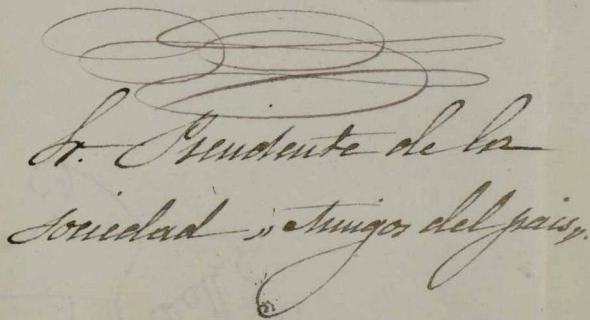 Sr. Presidente de la
sociedad "Amigos del pais".